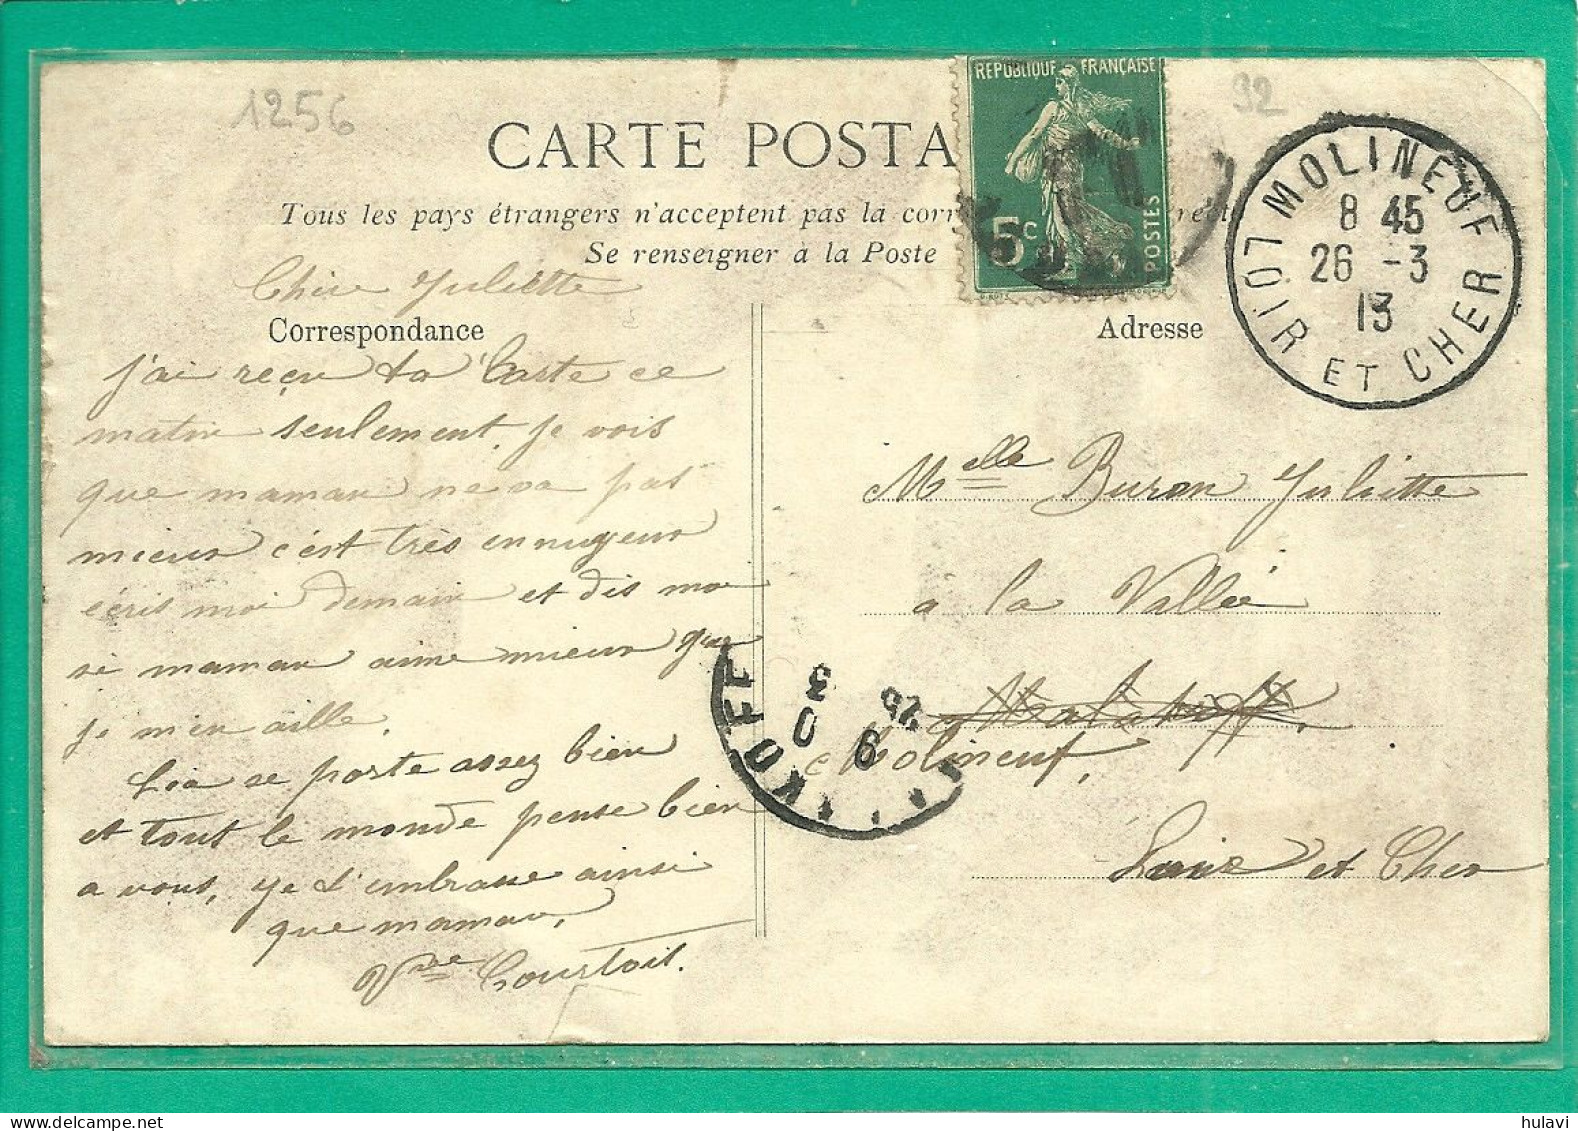 1256
92
CARTE POSTA
REPUBLIQUE FRANÇAISE
5c
POSTES
Tous les pays étrangers n'acceptent pas la corr recto
Se renseigner à la Poste
MOLINEUF
8 45
26 -3
13
LOIR ET CHER
Chère Juliette
Correspondance
j'ai reçu ta Carte ce
matin seulement. je vois
que maman ne va pas
mieux c'est très ennuyeux
écris moi demain et dis moi
si maman aime mieux que
je m'en aille.
Lia se porte assez bien
et tout le monde pense bien
a vous, je t'embrasse ainsi
que maman,
Vve Courtois.
Adresse
Melle Buron Juliette
à la Vallée
Malakoff
Molineuf,
Loir et Cher
KOFF
25
3
hulavi